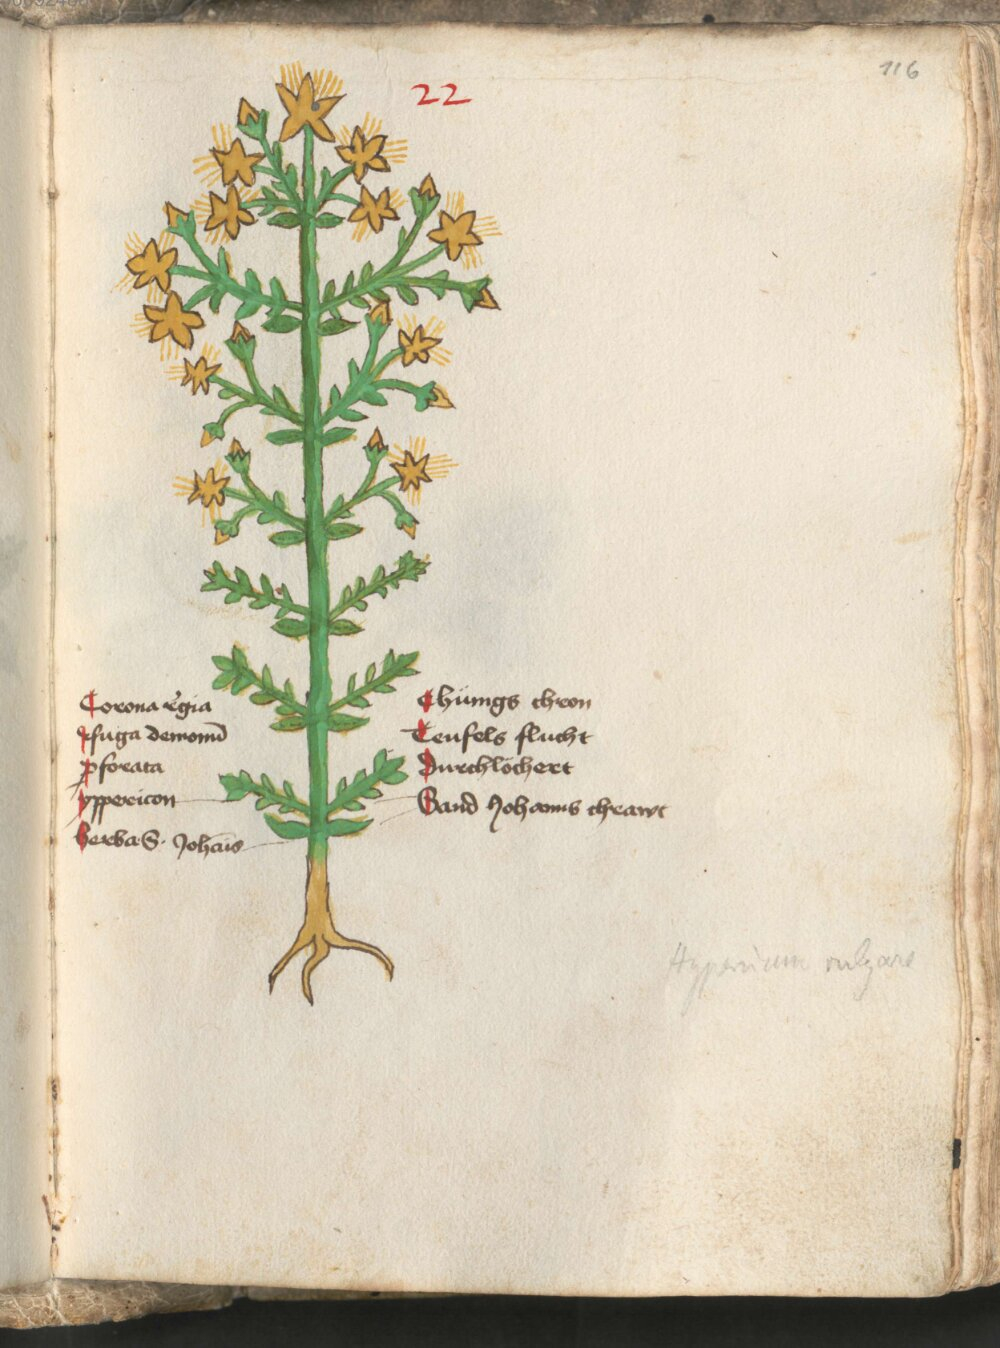 22
116
Corona rēgia
Ifuga demonū
pforata
yppericon
herba S. Johāis
Chünigs chron
Teufels flucht
Durchlöchert
Sand Johanns chrawt
Hypericum vulgare